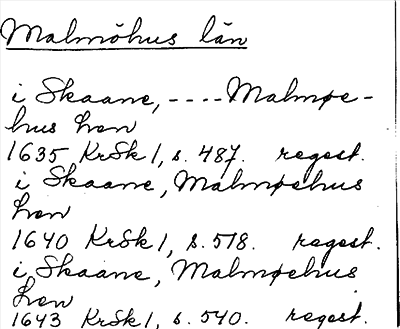 Malmöhus län
i Skaane, ---- Malmøe-
hus Len
1635 KrSk 1, s. 487. regest.
i Skaane, Malmøehus
Len
1640 KrSk 1, s. 518. regest.
i Skaane, Malmøehus
Len
1643 KrSk 1, s. 540. regest.